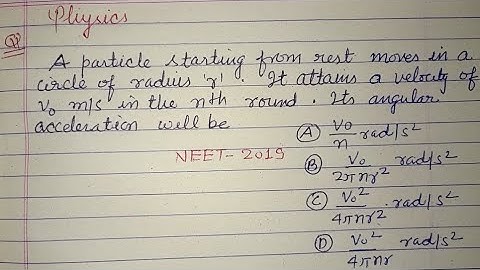 Physics
Q A particle starting from rest moves in a
circle of radius 'r'. It attains a velocity of
V₀ m/s in the nth round. Its angular
acceleration will be
(A) V₀/n rad/s²
NEET-2019
(B) V₀/2πnr² rad/s²
(C) V₀²/4πnr² . rad/s²
(D) V₀²/4πnr rad/s²